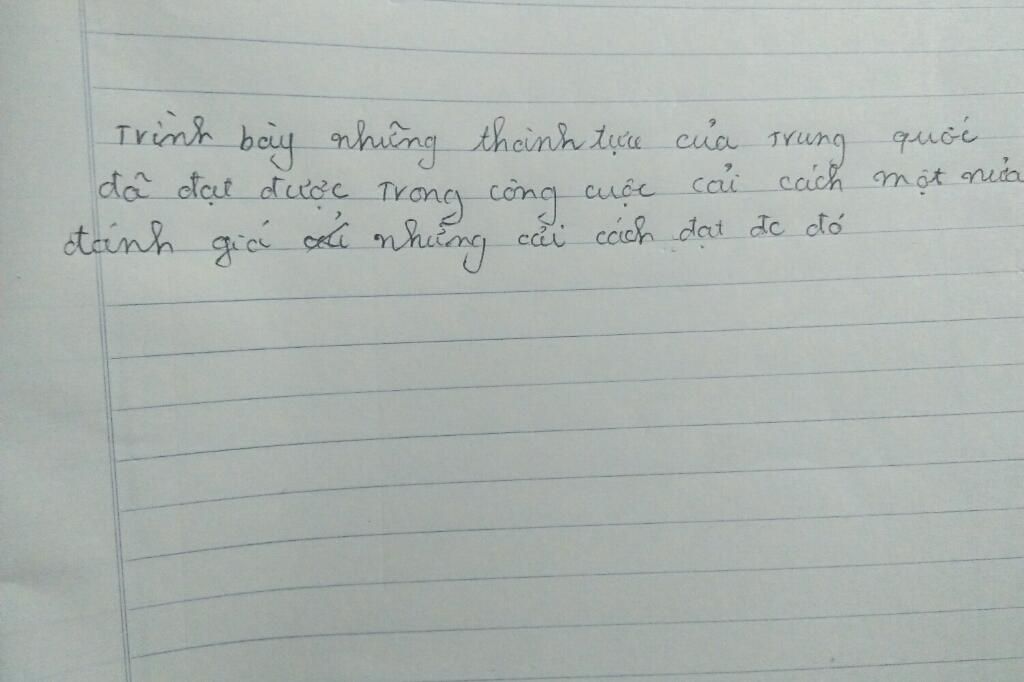 Trình bày những thành tựu của Trung quốc
đã đạt được Trong công cuộc cải cách một nửa
đánh giá những cải cách đạt đc đó